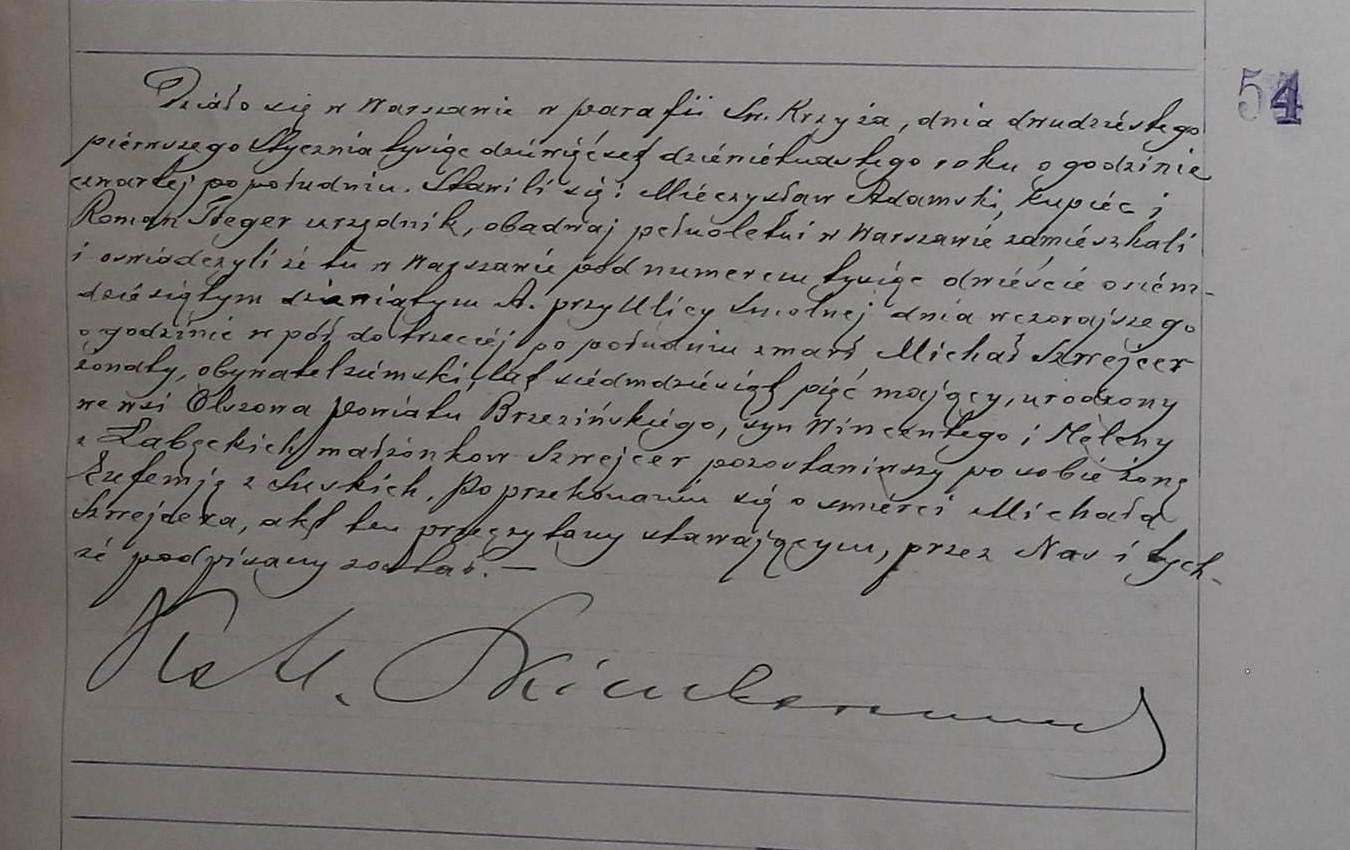 54
Działo się w Warszawie w parafii Św. Krzyża, dnia dwudziestego
pierwszego Stycznia tysiąc dziewięćset dziewiętnastego roku o godzinie
czwartej po południu. Stawili się: Mieczysław Adamski, kupiec i
Roman Steger urzędnik, obadwaj pełnoletni w Warszawie zamieszkali
i oświadczyli że tu w Warszawie pod numerem tysiąc dwieście osiem-
dziesiątym dziewiątym A. przy Ulicy Smolnej dnia wczorajszego
o godzinie w pół do trzeciej po południu zmarł Michał Szwejcer
żonaty, obywatel ziemski, lat siedmdziesiąt pięć mający, urodzony
we wsi Olszowa powiatu Brzezińskiego, syn Wincentego i Heleny
z Łabęckich małżonków Szwejcer pozostawiwszy po sobie żonę
Eufemię z Suskich. Po przekonaniu się o śmierci Michała
Szwejcera, akt ten przeczytany stawającym, przez Nas i tych-
że podpisany został. —